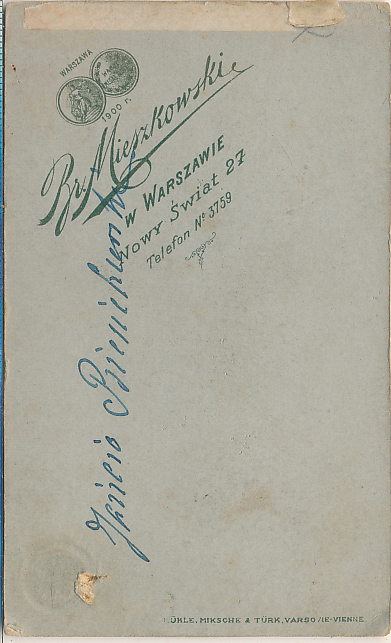 WARSZAWA
1900 r.
Br. Mieszkowski
W WARSZAWIE
Nowy Świat 27
Telefon Nº 3759
KÜHLE, MIKSCHE & TÜRK, VARSOVIE-VIENNE